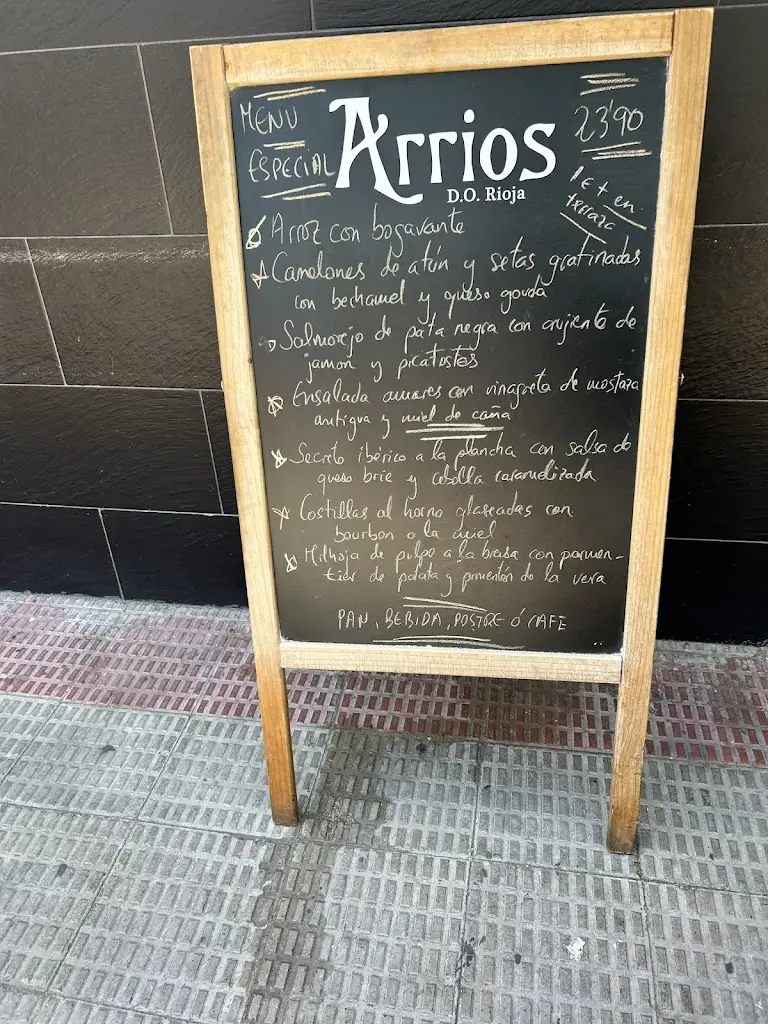 MENU
ESPECIAL
Arrios
D.O. Rioja
23'90
1€ + en
terraza
Arroz con bogavante
Canelones de atún y setas gratinados
con bechamel y queso gouda
Salmorejo de pata negra con crujiente de
jamon y picatostes
Ensalada con vinagreta de mostaza
antigua y miel de caña
Secreto ibérico a la plancha con salsa de
queso brie y cebolla caramelizada
Costillas al horno glaseadas con
bourbon a la miel
Milhoja de pulpo a la brasa con parmen-
tier de patata y pimentón de la vera
PAN, BEBIDA, POSTRE Ó CAFE